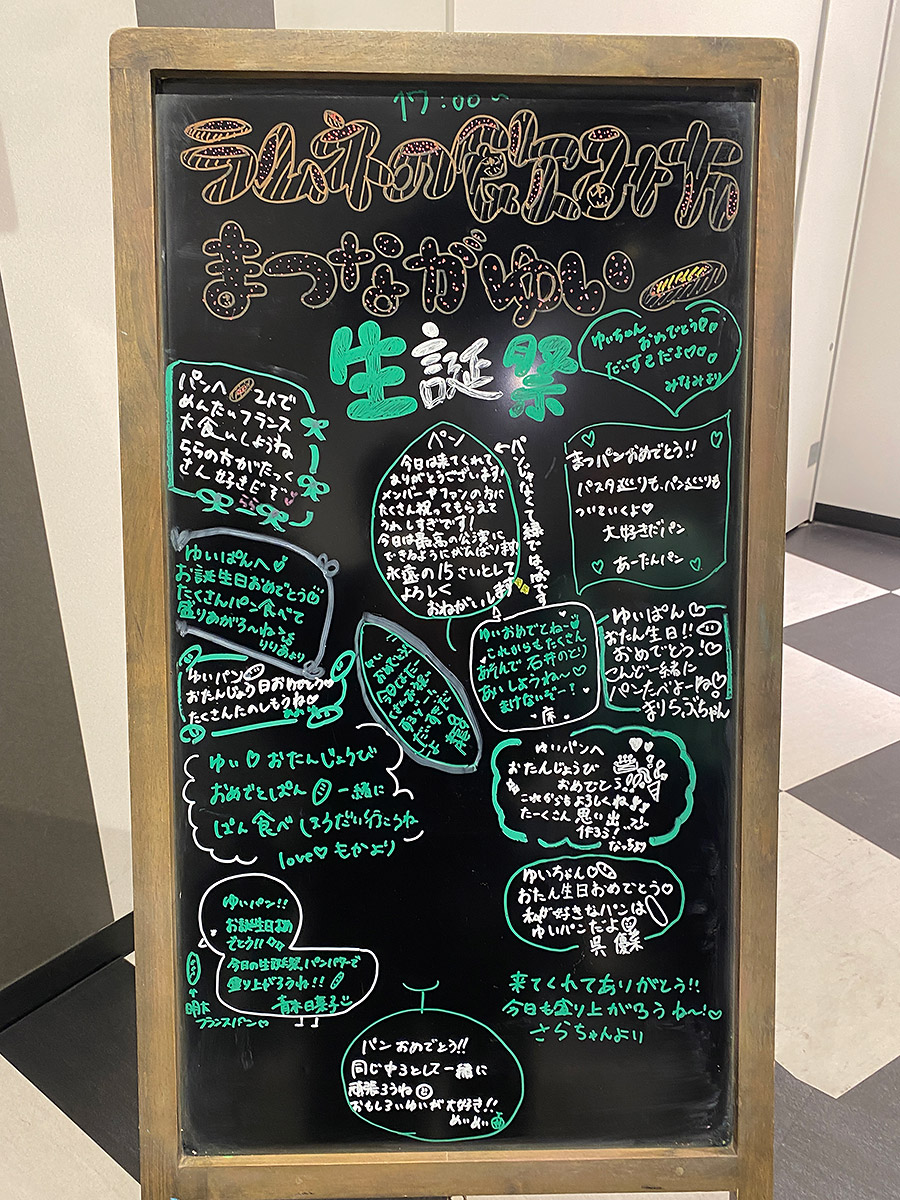 17:00~
ラムネの飲みかた
まつながゆい
生誕祭
ゆいちゃん
おめでとう♡
だいすきだよ♡
みなみより
パンへ 2人で
めんたいフランス
大食いしようね
ららの方がだっく
さん好きだぞ
らら
パン
今日は来てくれて
ありがとうございます!
メンバーやファンの方に
たくさん祝ってもらえて
うれしすぎです!
今日は最高の公演に
できるようにがんばります
永遠の15さいとして
よろしく
おねがいします
←パンじゃなくて緑ではっぱです
まつパンおめでとう!!
パスタ巡りも、パン巡りも
ついていくよ♡
大好きだパン
あーたんパン
ゆいぱんへ
お誕生日おめでとう
たくさんパン食べて
盛りあがろ~ねっ
りりあより
ゆいパン
おたんじょう日おめでとう
たくさんたのしもうね♡
おめでとう
今日は
ゆいおめでとねー
これからもたくさん
あそんで 石井のとり
あいしようね~♡
まけないぞー!
ゆいぱん♡
おたん生日!!
おめでとう!♡
こんど一緒に
パンたべよーね♡
まりらぶちゃん
ゆい♡おたんじょうび
おめでとぱん 一緒に
ぱん食べほうだい行こうね
love♡もかより
ゆいパンへ
おたんじょうび
おめでとう
これからもよろしくね!!
たーくさん 思い出
作ろう!
なっちょ
ゆいちゃん♡
おたん生日おめでとう♡
私が好きなパンは
ゆいパンだよ
呉 優菜
ゆいパン!!
お誕生日おめ
でとう!!
今日の生誕祭、パンパワーで
盛り上がろうね!!
青木日菜子
↑
明太
フランスパン♡
来てくれてありがとう!!
今日も盛り上がろうね~!♡
さらちゃんより
パンおめでとう!!
同じ中3として一緒に
頑張ろうね☺
おもしろいゆいが大好き!!
めいめい